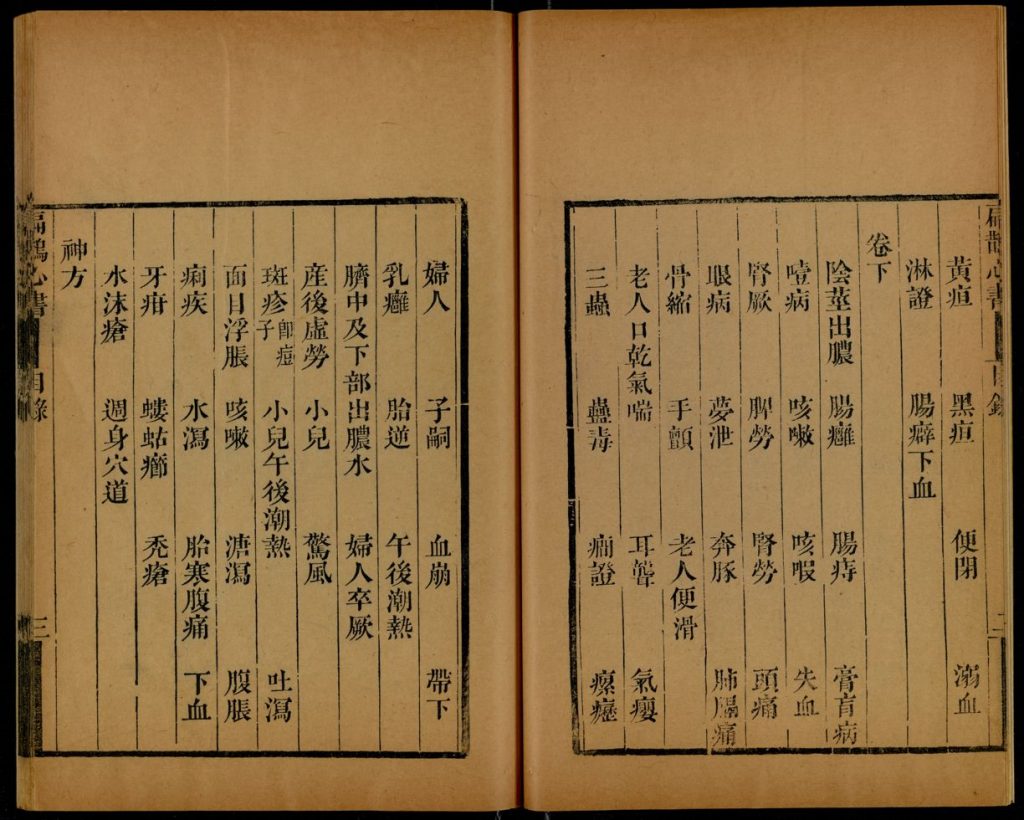 扁鵲心書 目錄 二
黃疸 黑疸 便閉 溺血
淋證 腸癖下血
卷下
陰莖出膿 腸癰 腸痔 膏肓病
噎病 咳嗽 咳暇 失血
腎厥 脾勞 腎勞 頭痛
眼病 夢泄 奔豚 肺膈痛
骨縮 手顫 老人便滑
老人口乾氣喘 耳聾 氣癭
三蟲 蠱毒 痼證 瘰癧
婦人 子嗣 血崩 帶下
乳癰 胎逆 午後潮熱
臍中及下部出膿水 婦人卒厥
產後虛勞 小兒 驚風
斑疹 卽痘子 小兒午後潮熱 吐瀉
面目浮脹 咳嗽 溏瀉 腹脹
痢疾 水瀉 胎寒腹痛 下血
牙疳 螻蛄癤 禿瘡
水沫瘡 週身穴道
神方
扁鵲心書 目錄 三